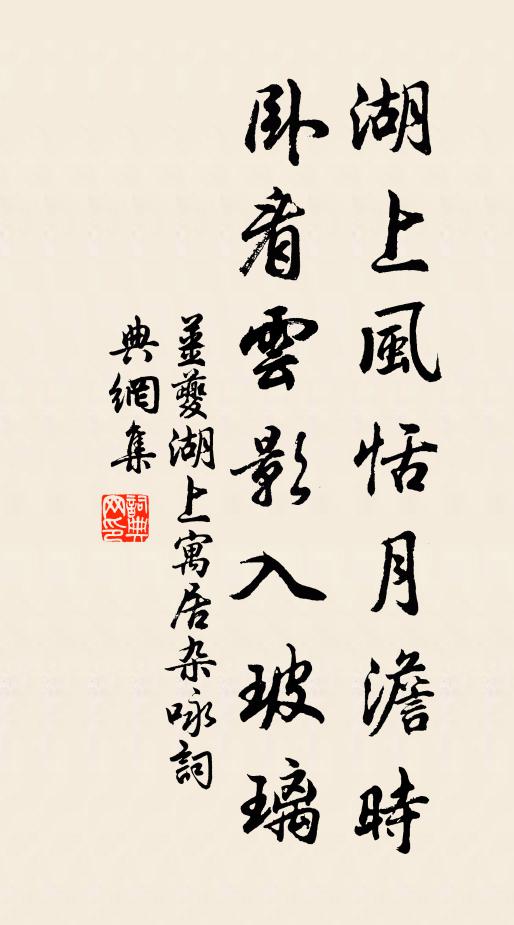 湖上風恬月澹時
卧看雲影入玻璃
姜夔湖上寓居杂咏詞
典網集
詞典網印